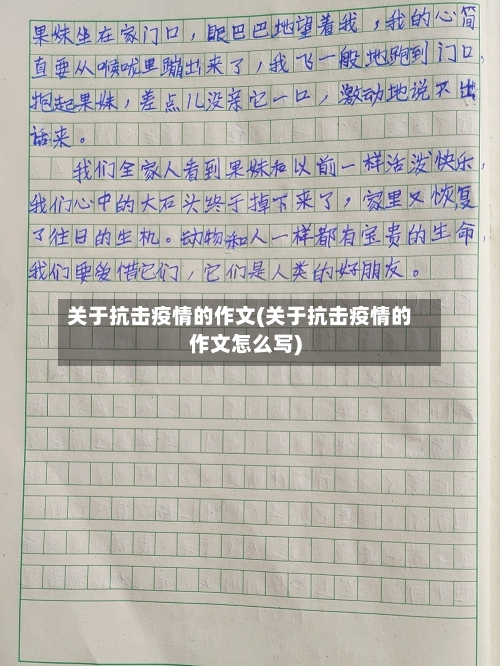 果妹坐在家门口，眼巴巴地望着我，我的心简
直要从喉咙里蹦出来了，我飞一般地跑到门口，
抱起果妹，差点儿没亲它一口，激动地说不出
话来。
我们全家人看到果妹和以前一样活泼快乐，
我们心中的大石头终于掉下来了，家里又恢复
了往日的生机。动物和人一样都有宝贵的生命，
我们要爱惜它们，它们是人类的好朋友。
关于抗击疫情的作文(关于抗击疫情的
作文怎么写)